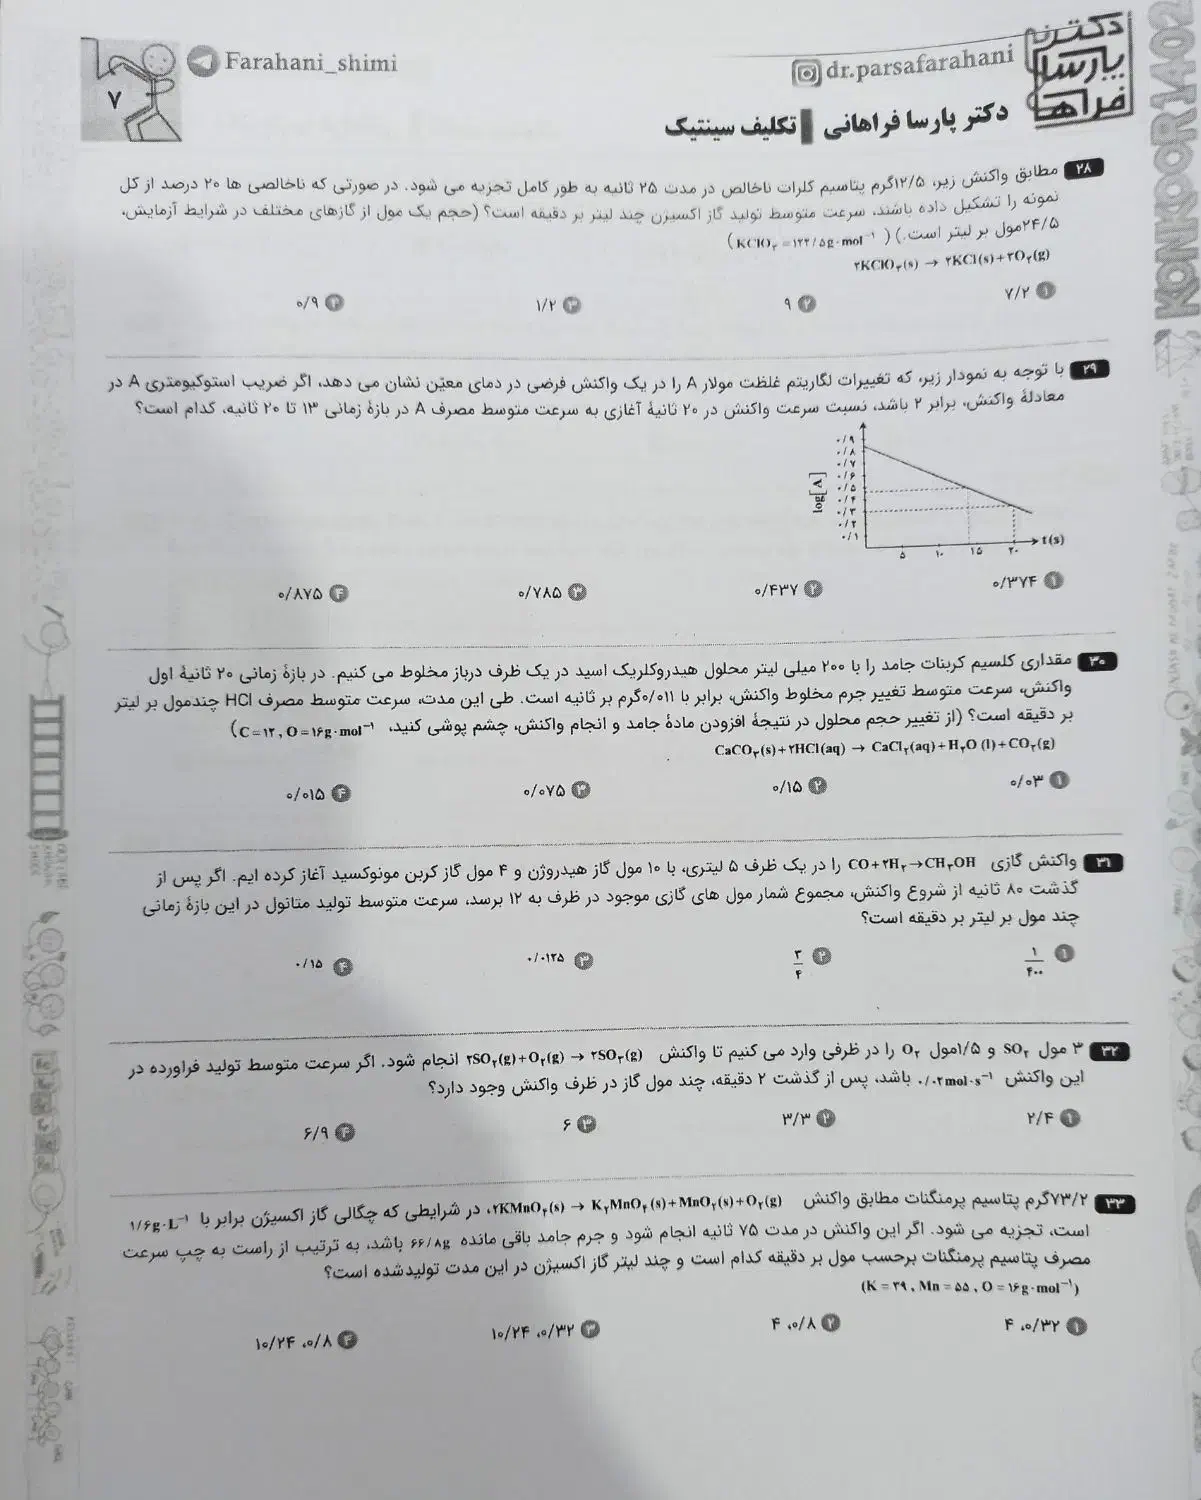 Farahani_shimi
dr.parsafarahani
دکتر پارسا فراهانی
KONKOOR1402
۷
دکتر پارسا فراهانی | تکلیف سینتیک
۲۸ مطابق واکنش زیر، ۱۲/۵گرم پتاسیم کلرات ناخالص در مدت ۲۵ ثانیه به طور کامل تجزیه می شود. در صورتی که ناخالصی ها ۲۰ درصد از کل
نمونه را تشکیل داده باشند، سرعت متوسط تولید گاز اکسیژن چند لیتر بر دقیقه است؟ (حجم یک مول از گازهای مختلف در شرایط آزمایش،
۲۴/۵مول بر لیتر است.) (KClO۳ = ۱۲۲/۵g·mol⁻¹)
۲KClO۳(s) → ۲KCl(s)+۳O۲(g)
۱ ۷/۲ ۲ ۹ ۳ ۱/۲ ۴ ۰/۹
۲۹ با توجه به نمودار زیر، که تغییرات لگاریتم غلظت مولار A را در یک واکنش فرضی در دمای معیّن نشان می دهد، اگر ضریب استوکیومتری A در
معادلهٔ واکنش، برابر ۲ باشد، نسبت سرعت واکنش در ۲۰ ثانیهٔ آغازی به سرعت متوسط مصرف A در بازهٔ زمانی ۱۳ تا ۲۰ ثانیه، کدام است؟
۰/۹
۰/۸
۰/۷
۰/۶
۰/۵
۰/۴
۰/۳
۰/۲
۰/۱
log[A]
۵ ۱۰ ۱۵ ۲۰ t(s)
۱ ۰/۳۷۴ ۲ ۰/۴۳۷ ۳ ۰/۷۸۵ ۴ ۰/۸۷۵
۳۰ مقداری کلسیم کربنات جامد را با ۲۰۰ میلی لیتر محلول هیدروکلریک اسید در یک ظرف درباز مخلوط می کنیم. در بازهٔ زمانی ۲۰ ثانیهٔ اول
واکنش، سرعت متوسط تغییر جرم مخلوط واکنش، برابر با ۰/۰۱۱گرم بر ثانیه است. طی این مدت، سرعت متوسط مصرف HCl چندمول بر لیتر
بر دقیقه است؟ (از تغییر حجم محلول در نتیجهٔ افزودن مادهٔ جامد و انجام واکنش، چشم پوشی کنید، C=۱۲, O=۱۶g·mol⁻¹)
CaCO۳(s)+۲HCl(aq) → CaCl۲(aq)+H۲O (l)+CO۲(g)
۱ ۰/۰۳ ۲ ۰/۱۵ ۳ ۰/۰۷۵ ۴ ۰/۰۱۵
۳۱ واکنش گازی CO+۲H۲→CH۳OH را در یک ظرف ۵ لیتری، با ۱۰ مول گاز هیدروژن و ۴ مول گاز کربن مونوکسید آغاز کرده ایم. اگر پس از
گذشت ۸۰ ثانیه از شروع واکنش، مجموع شمار مول های گازی موجود در ظرف به ۱۲ برسد، سرعت متوسط تولید متانول در این بازهٔ زمانی
چند مول بر لیتر بر دقیقه است؟
۱ ۱/۴۰۰ ۲ ۳/۴ ۳ ۰/۰۱۲۵ ۴ ۰/۱۵
۳۲ ۳ مول SO۲ و ۱/۵مول O۲ را در ظرفی وارد می کنیم تا واکنش ۲SO۲(g)+O۲(g) → ۲SO۳(g) انجام شود. اگر سرعت متوسط تولید فراورده در
این واکنش ۰/۰۲mol·s⁻¹ باشد، پس از گذشت ۲ دقیقه، چند مول گاز در ظرف واکنش وجود دارد؟
۱ ۲/۴ ۲ ۳/۳ ۳ ۶ ۴ ۶/۹
۳۳ ۷۳/۲گرم پتاسیم پرمنگنات مطابق واکنش ۲KMnO۴(s) → K۲MnO۴(s)+MnO۲(s)+O۲(g)، در شرایطی که چگالی گاز اکسیژن برابر با ۱/۶g·L⁻¹
است، تجزیه می شود. اگر این واکنش در مدت ۷۵ ثانیه انجام شود و جرم جامد باقی مانده ۶۶/۸g باشد، به ترتیب از راست به چپ سرعت
مصرف پتاسیم پرمنگنات برحسب مول بر دقیقه کدام است و چند لیتر گاز اکسیژن در این مدت تولیدشده است؟
(K = ۳۹, Mn = ۵۵, O = ۱۶g·mol⁻¹)
۱ ۰/۳۲، ۴ ۲ ۰/۸، ۴ ۳ ۰/۳۲، ۱۰/۲۴ ۴ ۰/۸، ۱۰/۲۴